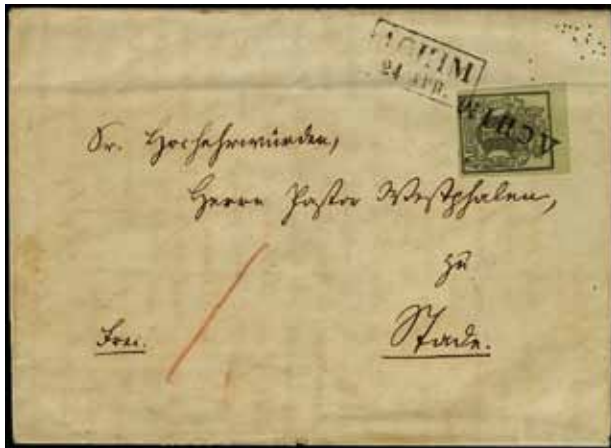 ACHIM
24 APR.
ACHIM
Sr. Hochehrwürden,
Herrn Pastor Westphalen,
zu
Stade.
Frei.